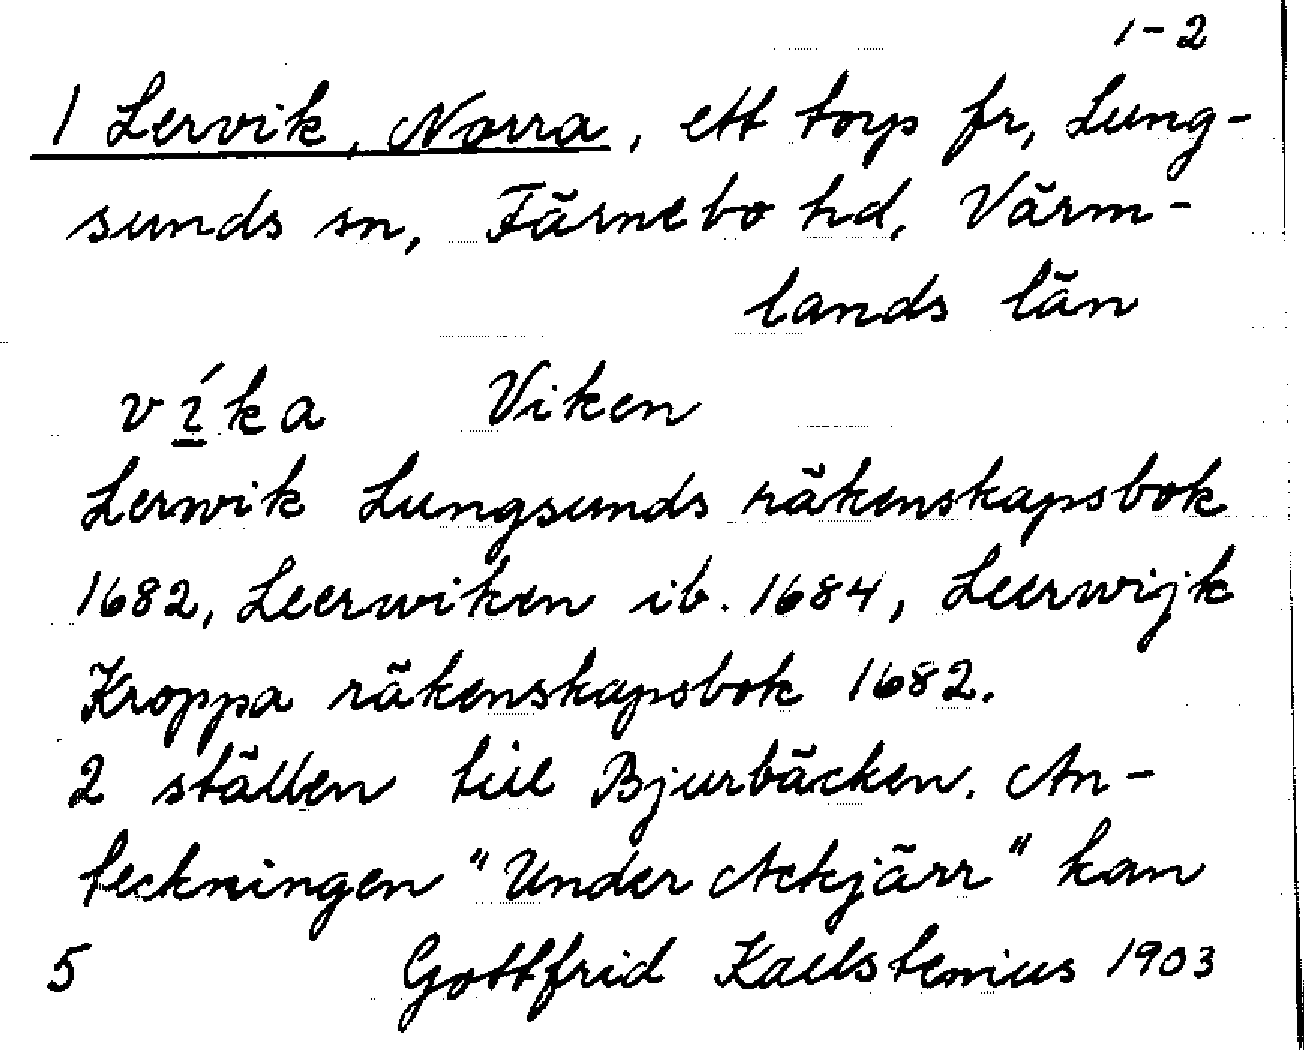 1-2
1 Lervik, Norra, ett torp fr, Lung-
sunds sn, Färnebo hd, Värm-
lands län
víka Viken
Lerwik Lungsunds räkenskapsbok
1682, Leerwiken ib. 1684, Leerwijk
Kroppa räkenskapsbok 1682.
2 ställen till Bjurbäcken. An-
teckningen "Under Ackjärr" kan
5 Gottfrid Kallstenius 1903